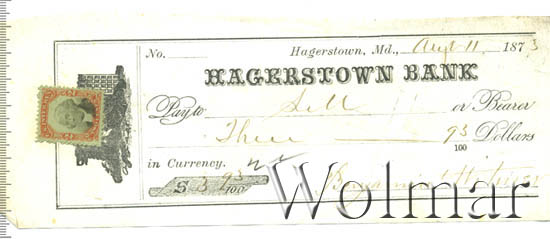 No.
Hagerstown, Md., Augt 11, 1873
HAGERSTOWN BANK
Pay to or Bearer
Three 93/100 Dollars
in Currency.
$ 3 93/100
Wolmar